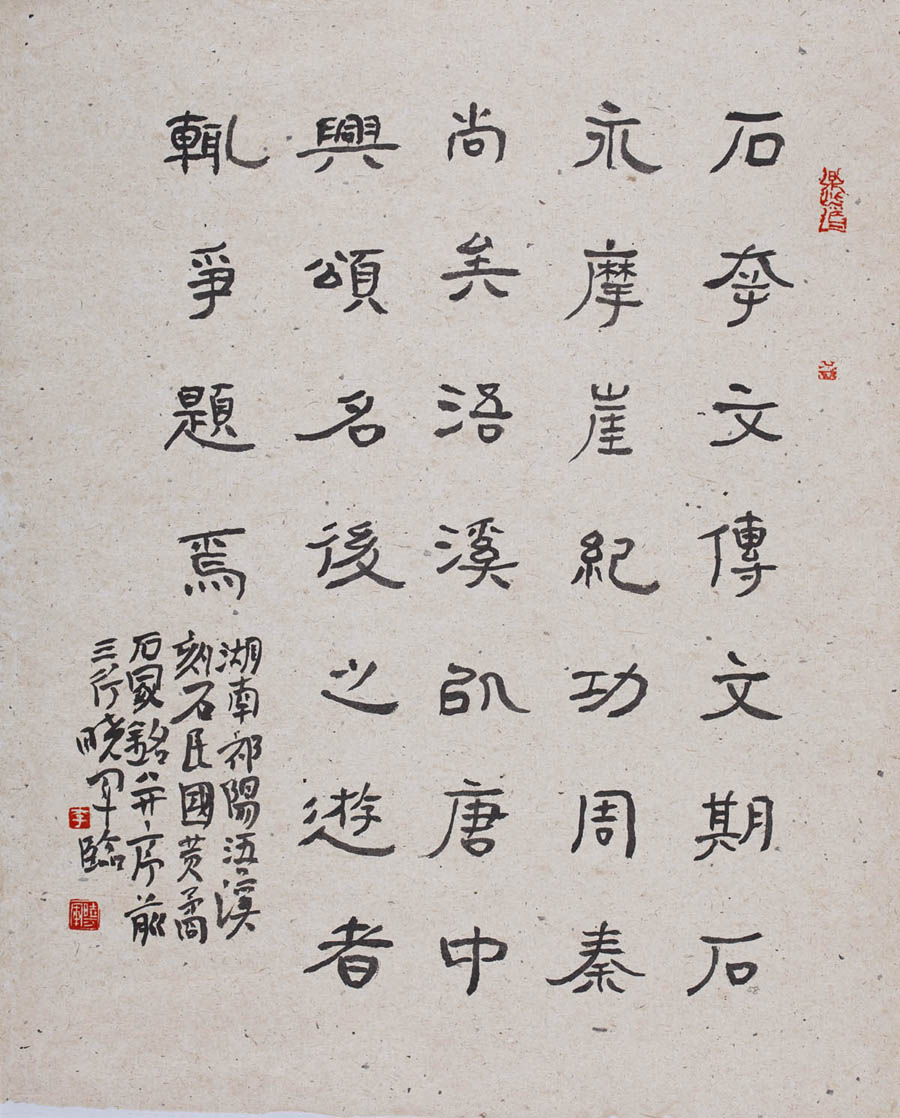 石幸文傳文期石
永摩崖紀功周秦
尚矣浯溪以唐中
興頌名後之遊者
輒爭題焉
湖南祁陽浯溪
刻石民國黄矞
石冢銘并序前
三行曉軍臨
李